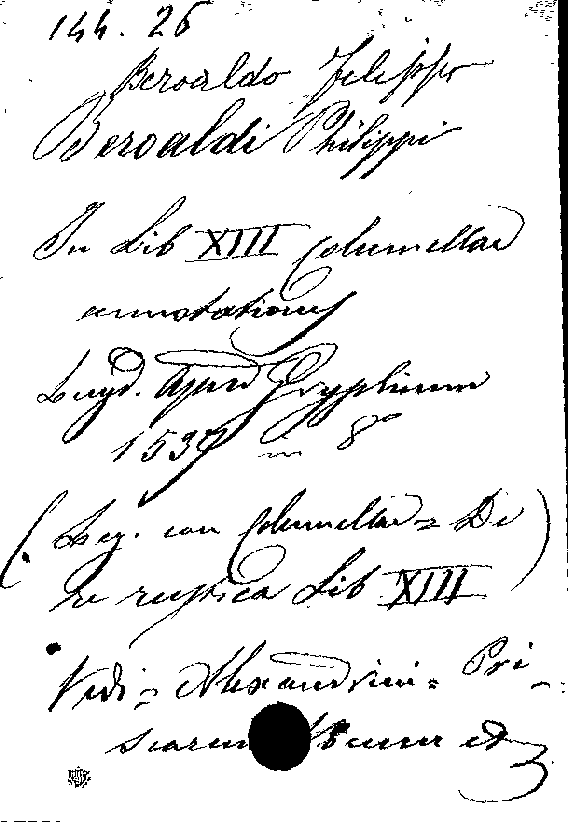 144. 26
Beroaldo Filippo
Beroaldi Philippi
In Lib XIII Columellae
annotationes
Lugd. apud Gryphium
1537 in 8°
(Leg. con Columella = De)
re rustica Lib. XIII
Vedi = Alexandrini = Pri-
scarum et